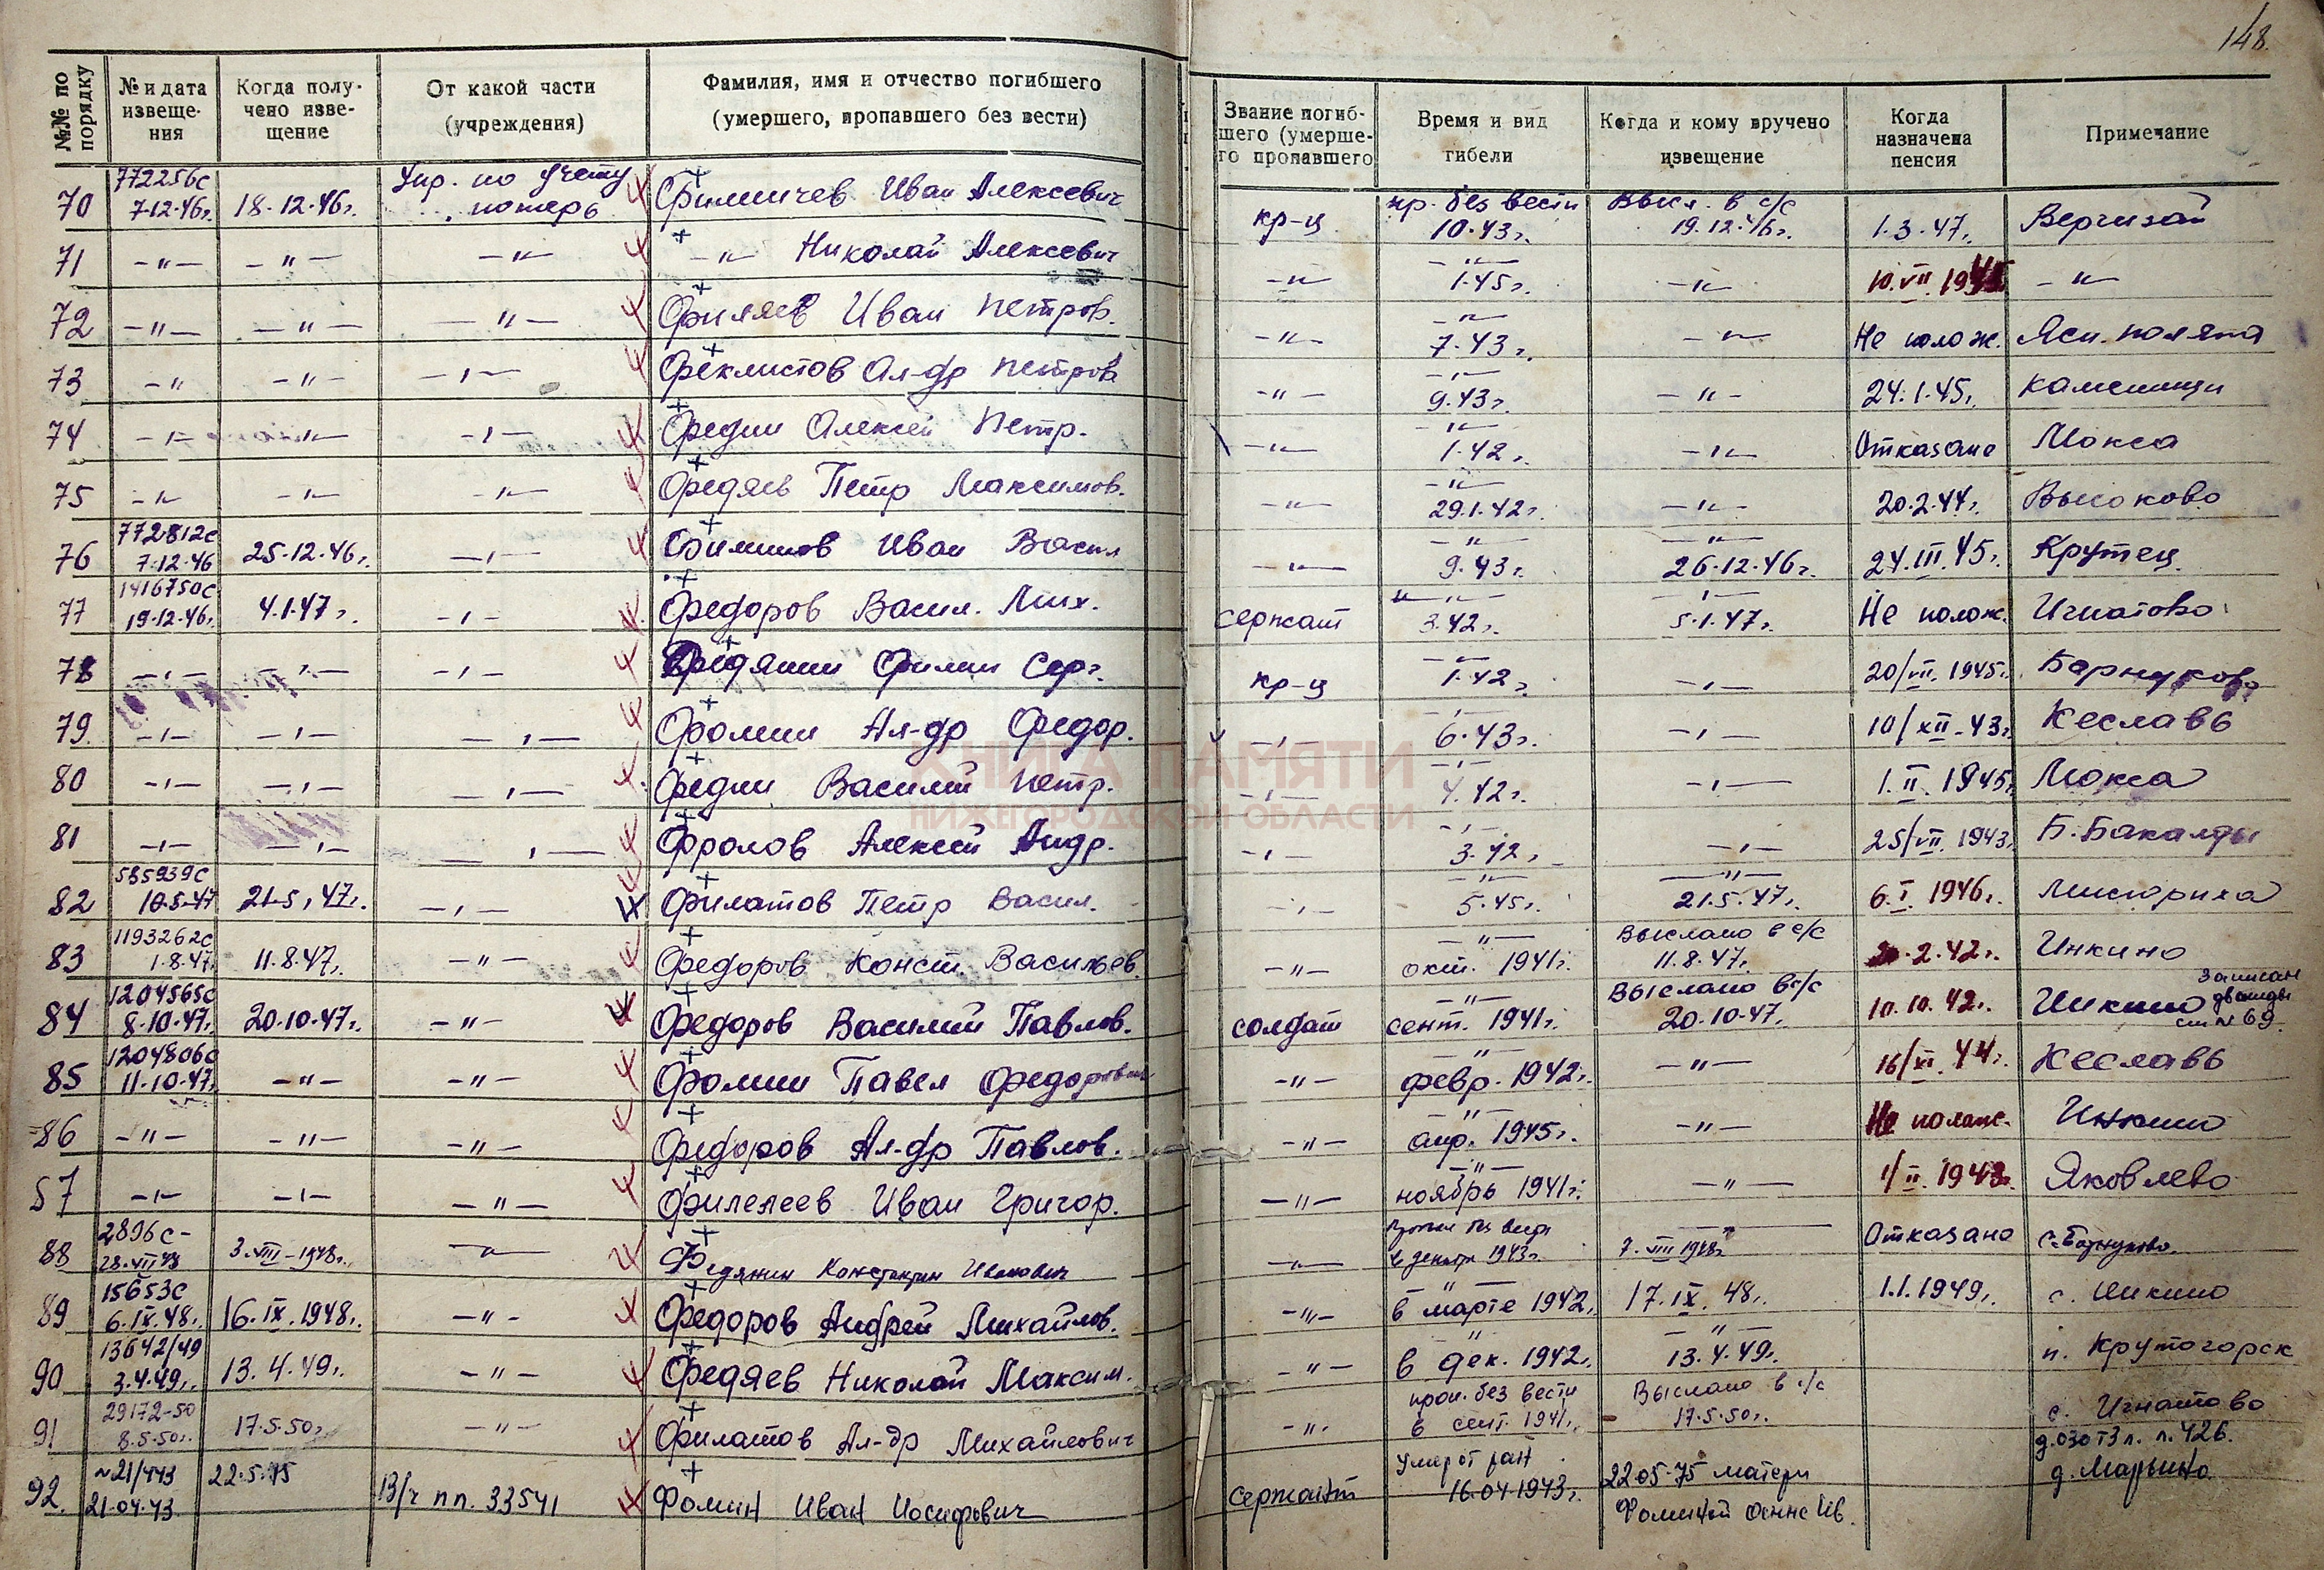 148.
№№ по порядку | № и дата извеще-ния | Когда полу-чено изве-щение | От какой части (учреждения) | Фамилия, имя и отчество погибшего (умершего, пропавшего без вести) | Звание погиб-шего (умерше-го пропавшего | Время и вид гибели | Когда и кому вручено извещение | Когда назначена пенсия | Примечание
70 | 772256с 7·12·46г. | 18·12·46г. | Упр. по учету потерь | Филичев Иван Алексевич | кр-ц | пр. без вести 10·43г. | Высл. в с/с 19.12.46г. | 1·3·47г. | Вергизай
71 | -"- | -"- | -"- | -"- Николай Алексевич | -"- | -"- 1·45г. | -"- | 10.VII.1945 | -"-
72 | -"- | -"- | -"- | Филяев Иван Петров. | -"- | -"- 7·43г. | -"- | Не полож. | Ясн. поляна
73 | -"- | -"- | -"- | Феклистов Ал-др Петров | -"- | -"- 9·43г. | -"- | 24·1·45г. | Каменищи
74 | -"- | -"- | -"- | Федин Алексей Петр. | -"- | -"- 1·42г. | -"- | Отказано | Мокса
75 | -"- | -"- | -"- | Федяев Петр Максимов. | -"- | -"- 29.1.42г. | -"- | 20·2·44г. | Высоково
76 | 772812с 7·12·46 | 25·12·46г. | -"- | Филипов Иван Васил | -"- | -"- 9·43г. | -"- 26·12·46г. | 24.III.45г. | Крутец
77 | 1416750с 19·12·46г. | 4.1.47г. | -"- | Федоров Васил. Мих. | сержант | -"- 3.42г. | -"- 5·1·47г. | Не полож. | Игнатово
78 | -"- | -"- | -"- | Федянин Филип Серг. | кр-ц | -"- 1·42г. | -"- | 20/VII.1945г. | Барнуково
79 | -"- | -"- | -"- | Фомин Ал-др Федор. | -"- | -"- 6·43г. | -"- | 10/XII-43г. | Кеславь
80 | -"- | -"- | -"- | Федин Василий Петр. | -"- | -"- 4.42г. | -"- | 1.II.1945г | Мокса
81 | -"- | -"- | -"- | Фролов Алексей Андр. | -"- | -"- 3·42г. | -"- | 25/VII.1943 | Б. Бакалды
82 | 585939с 10·5·47 | 21·5·47г. | -"- | Филатов Петр Васил. | -"- | -"- 5·45г. | -"- 21.5.47г. | 6.I.1946г. |
83 | 1193262с 1·8·47г. | 11·8·47г. | -"- | Федоров Конст. Васильев. | -"- | -"- окт. 1941г. | Выслано в с/с 11·8·47г. | 2·42г. | Инкино
84 | 1204565с 8·10·47г. | 20·10·47г. | -"- | Федоров Василий Павлов. | солдат | -"- сент. 1941г. | Выслано в с/с 20·10·47г. | 10.10.42г. | Инкино записан дважды ст. № 69.
85 | 1204806с 11·10·47г. | -"- | -"- | Фомин Павел Федорович | -"- | -"- февр. 1942г. | -"- | 16/XI.44г. | Кеславь
86 | -"- | -"- | -"- | Федоров Ал-др Павлов. | -"- | -"- апр. 1945г. | -"- | Не полож. | Инкино
57 | -"- | -"- | -"- | Филелеев Иван Григор. | -"- | -"- ноябрь 1941г. | -"- | 1/II.1943г. | Яковлево
88 | 2896с- 28.VII 48 | 3.VIII-1948г. | -"- | Федянин Константин Иванович | -"- | в декабре 1943г. | 7.VIII 1948г | Отказано | с. Барнуково
89 | 15653с 6.IX.48г. | 16.IX.1948г. | -"- | Федоров Андрей Михайлов. | -"- | -"- в марте 1942г. | 17.IX.48г. | 1.1.1949г. | с. Инкино
90 | 13642/49 3.4.49г. | 13.4.49г. | -"- | Федяев Николай Максим. | -"- | -"- в дек. 1942г. | -"- 13.4.49г. | | п. Крутогорск
91 | 29172-50 8.5.50г. | 17·5·50г. | -"- | Филатов Ал-др Михайлович | -"- | проп. без вести в сент. 1941г. | Выслано в с/с 17·5·50г. | | с. Игнатово
92. | №21/443 21·04·43 | 22.5.75 | В/ч пп. 33541 | Фомин Иван Иосифович | сержант | Умер от ран 16.04.1943г. | 22 05·75 матери Фоминой Ив. | | д. 030 т3 л. п. 426. д. Марьино
КНИГА ПАМЯТИ
НИЖЕГОРОДСКОЙ ОБЛАСТИ